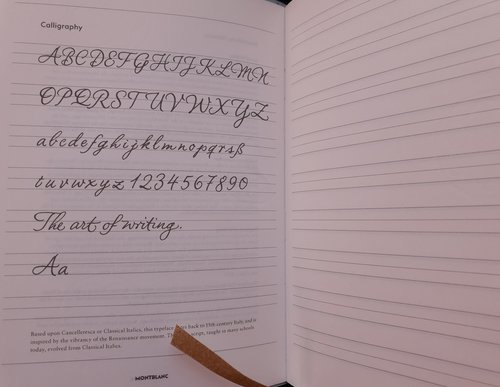 Calligraphy
ABCDEFGHIJKLMN
OPQRSTUVWXYZ
abcdefghijklmnopqrsß
tuvwxyz 1234567890
The art of writing.
Aa
Based upon Cancelleresca or Classical Italics, this typeface back to 15th-century Italy, and is
inspired by the vibrancy of the Renaissance movement. script, taught in many schools
today, evolved from Classical Italics.
MONTBLANC